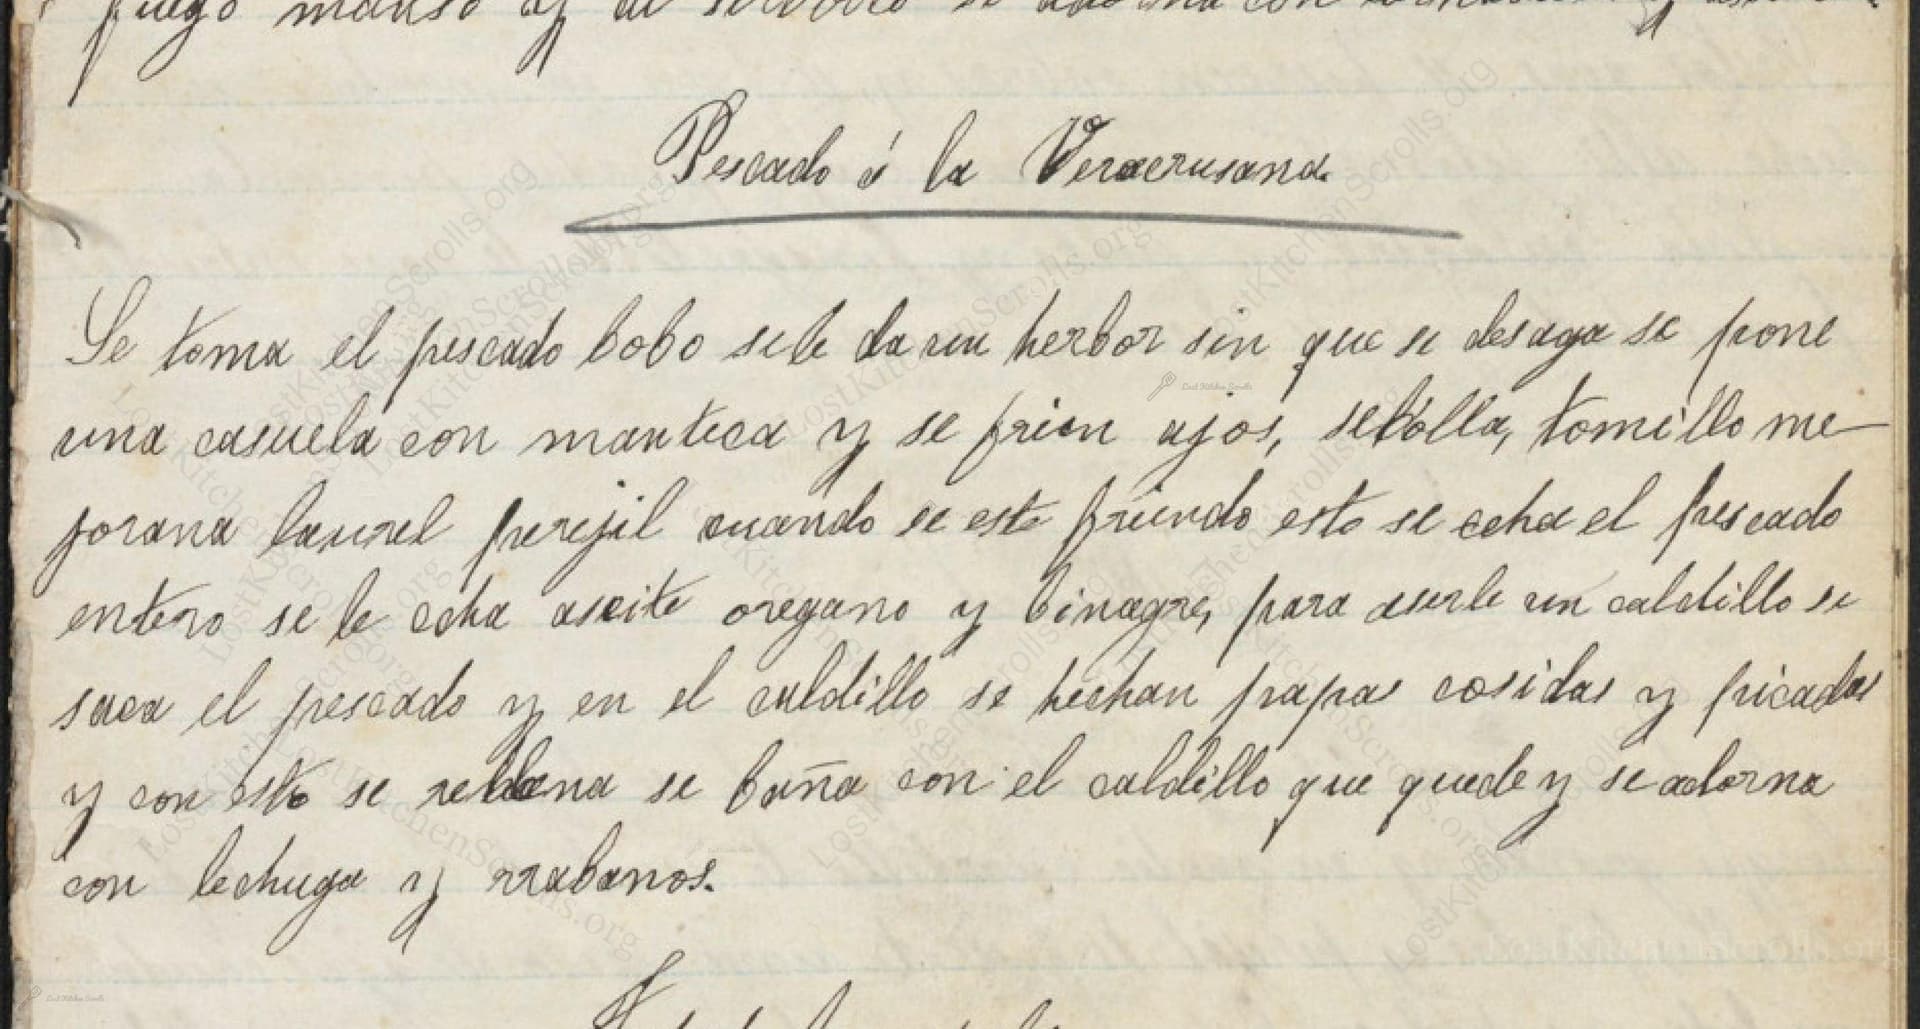 fuego manso y al servirlo se adorna con
Pescado á la Veracrusana
Se toma el pescado bobo sele da un herbor sin que se desaga se pone
una casuela con manteca y se frien ajos, sebolla, tomillo me
jorana laurel perejil cuando se este friendo esto se echa el pescado
entero se le echa aseite oregano y binagre, para aserle un caldillo se
saca el pescado y en el caldillo se hechan papas cosidas y picadas
y con esto se rellena se baña con el caldillo que quede y se adorna
con lechuga y rrabanos.